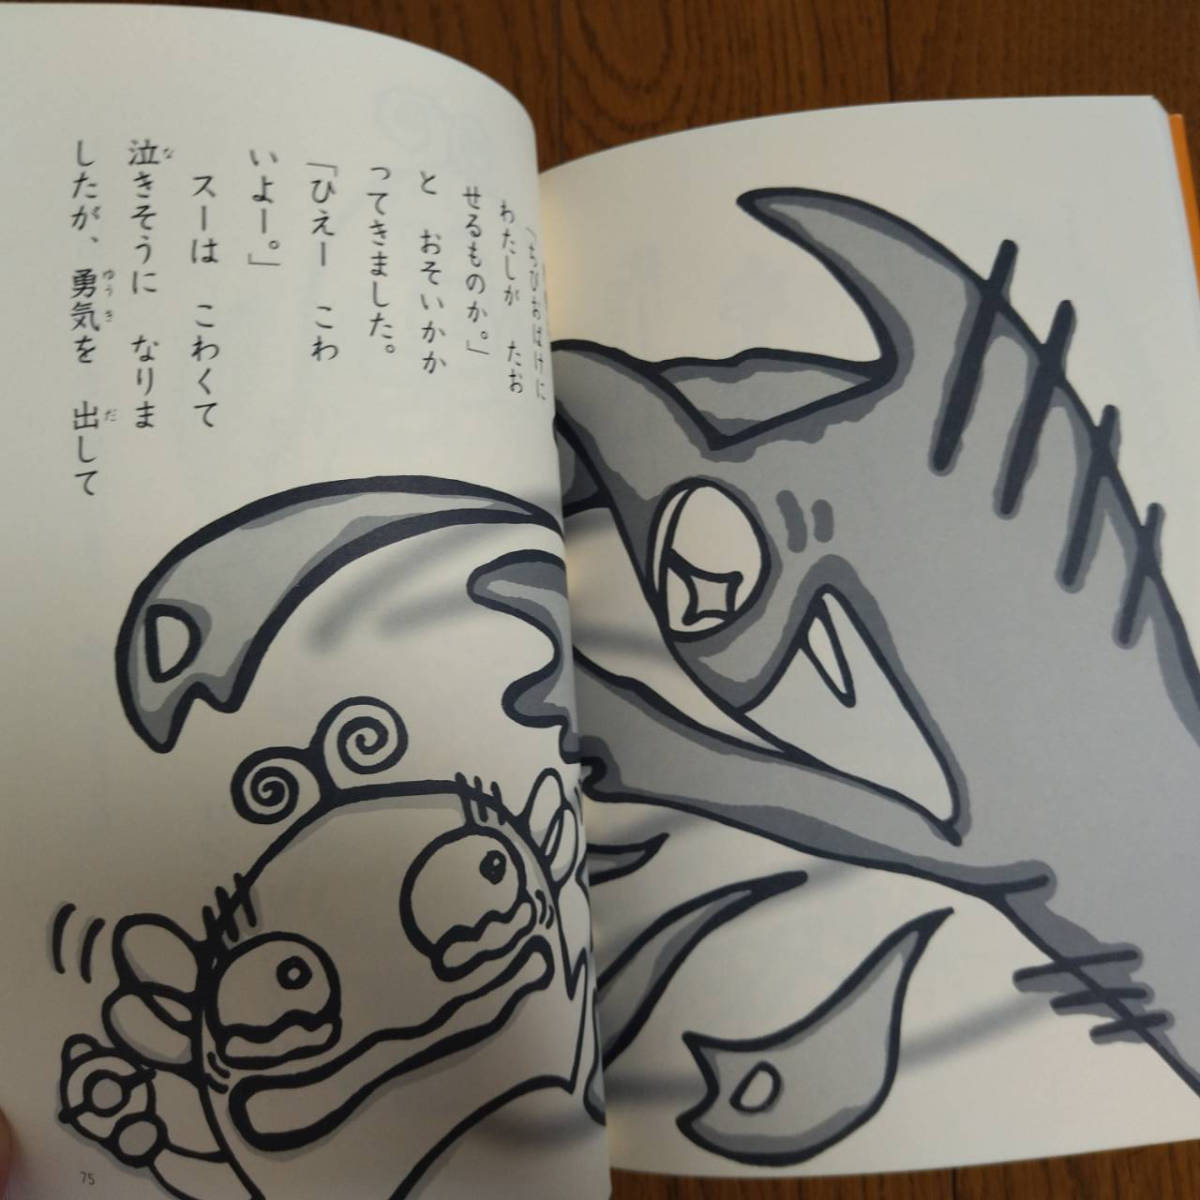 「ちびおばけに
わたしが　たお
せるものか。」
と　おそいかか
ってきました。
「ひえー　こわ
いよー。」
スーは　こわくて
泣きそうに　なりま
したが、勇気を　出して
75